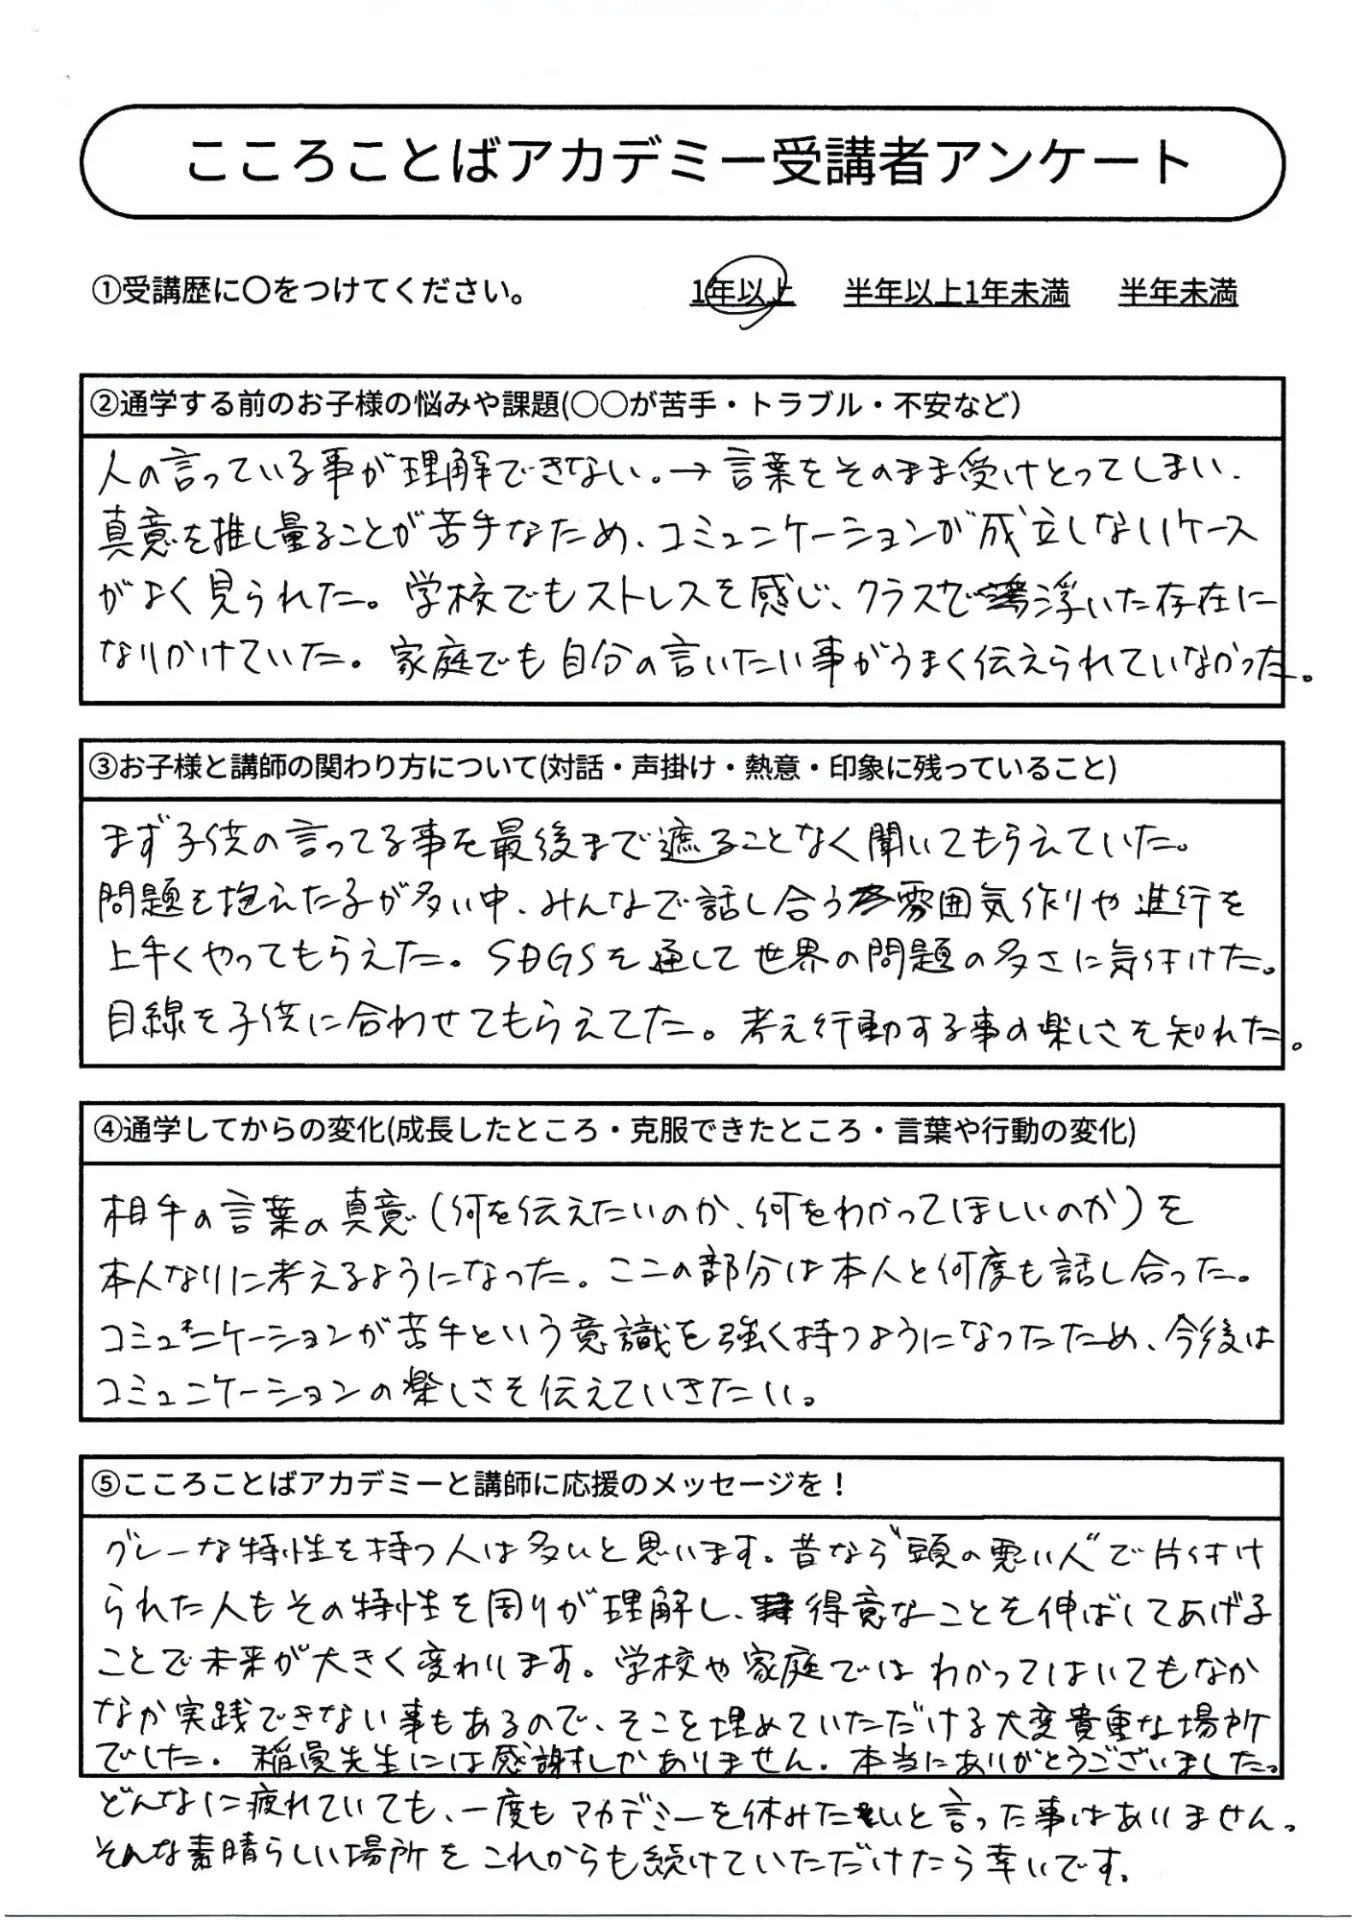 こころことばアカデミー受講者アンケート
①受講歴に〇をつけてください。 1年以上 半年以上1年未満 半年未満
②通学する前のお子様の悩みや課題(〇〇が苦手・トラブル・不安など)
人の言っている事が理解できない。→ 言葉をそのまま受けとってしまい、
真意を推し量ることが苦手なため、コミュニケーションが成立しないケース
がよく見られた。学校でもストレスを感じ、クラスで浮いた存在に
なりかけていた。家庭でも自分の言いたい事がうまく伝えられていなかった。
③お子様と講師の関わり方について(対話・声掛け・熱意・印象に残っていること)
まず子供の言ってる事を最後まで遮ることなく聞いてもらえていた。
問題を抱えた子が多い中、みんなで話し合う雰囲気作りや進行を
上手くやってもらえた。SDGSを通して世界の問題の多さに気付けた。
目線を子供に合わせてもらえてた。考え行動する事の楽しさを知れた。
④通学してからの変化(成長したところ・克服できたところ・言葉や行動の変化)
相手の言葉の真意(何を伝えたいのか、何をわかってほしいのか)を
本人なりに考えるようになった。ここの部分は本人と何度も話し合った。
コミュニケーションが苦手という意識を強く持つようになったため、今後は
コミュニケーションの楽しさを伝えていきたい。
⑤こころことばアカデミーと講師に応援のメッセージを！
グレーな特性を持つ人は多いと思います。昔なら“頭の悪い人”で片付け
られた人もその特性を周りが理解し、得意なことを伸ばしてあげる
ことで未来が大きく変わります。学校や家庭ではわかってはいてもなか
なか実践できない事もあるので、そこを埋めていただける大変貴重な場所
でした。稲員先生には感謝しかありません。本当にありがとうございました。
どんなに疲れていても、一度もアカデミーを休みたいと言った事はありません。
そんな素晴らしい場所をこれからも続けていただけたら幸いです。